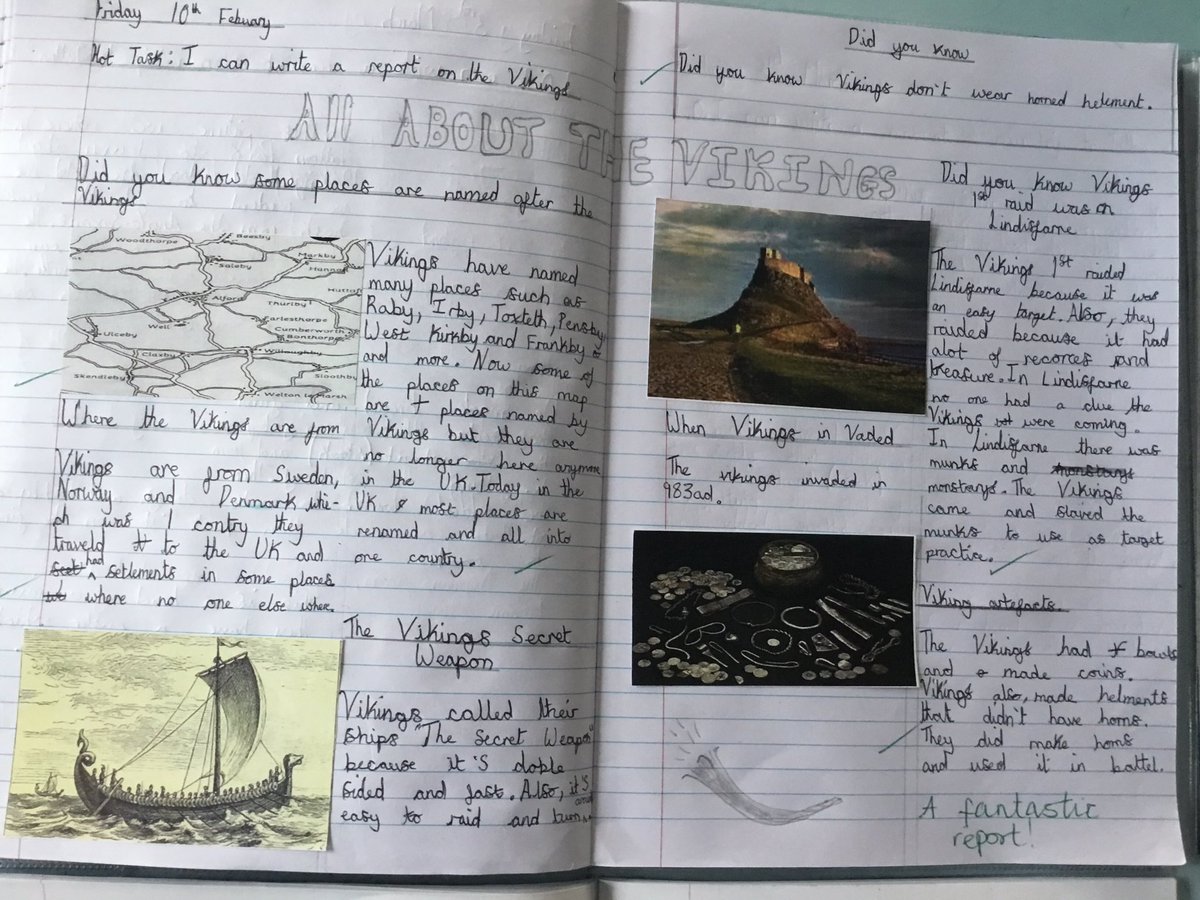 Friday 10th Febuary
Hot Task: I can write a report on the Vikings
All ABOUT THE VIKINGS
Did you know some places are named after the
Vikings
Woodthorpe
Beesby
Markby
Saleby
Hanna
Alford
Thurlby
Well
Farlesthorpe
Cumberworth
Bonthorpe
Ulceby
Claxby
Willoughby
Skendleby
Sloothby
Welton le Marsh
Vikings have named
many places such as
Raby, Irby, Toxteth, Pensby,
West Kirkby and Frankby
and more. Now some of
the places on this map
are places named by
Vikings but they are
no longer here anymore
in the UK. Today in the
UK most places are
renamed and all into
one country.
Where the Vikings are from
Vikings are from Sweden,
Norway and Denmark whi-
ch was 1 contry they
traveld to the UK and
had setlements in some places
where no one else wher.
The Vikings Secret
Weapon
Vikings called their
ships "The Secret Weapon"
because it'S doble
sided and fast. Also, it'S
easy to raid and turn
Did you know
Did you know Vikings don't wear horned helement.
When Vikings in Vaded
The vikings invaded in
983ad.
Did you know Vikings
1st raid was on
Lindisfarne
The Vikings 1st raided
Lindisfarne because it was
an easy target. Also, they
raided because it had
alot of recorces and
treasure. In Lindisfarne
no one had a clue the
Vikings were coming.
In Lindisfarne there was
munks and
monstarys. The Vikings
came and slaved the
munks to use as target
practice.
Viking artefacts.
The Vikings had bowls
and made coins.
Vikings also, made helments
that didn't have horns.
They did make horns
and used it in battel.
A fantastic
report!